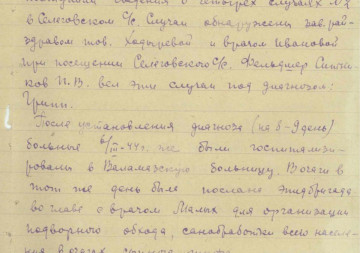 сведения о четырех случаях №2
в Селеговском с/с. Случаи обнаружены зав. рай-
здравом тов. Ходыревой и врачом Ивановой
при посещении Селеговского с/с. Фельдшер
ков П.В. вел эти случаи под диагнозом:
Грипп.
После установления диагноза (на 8-9 день)
больные 6/III-44г. же были госпитализи-
рованы в Валамазскую больницу. В очаги в
тот же день была послана эпидбригада
во главе с врачом Малых для организации
подворного обхода, санобработки всего населе-
ния в очагах